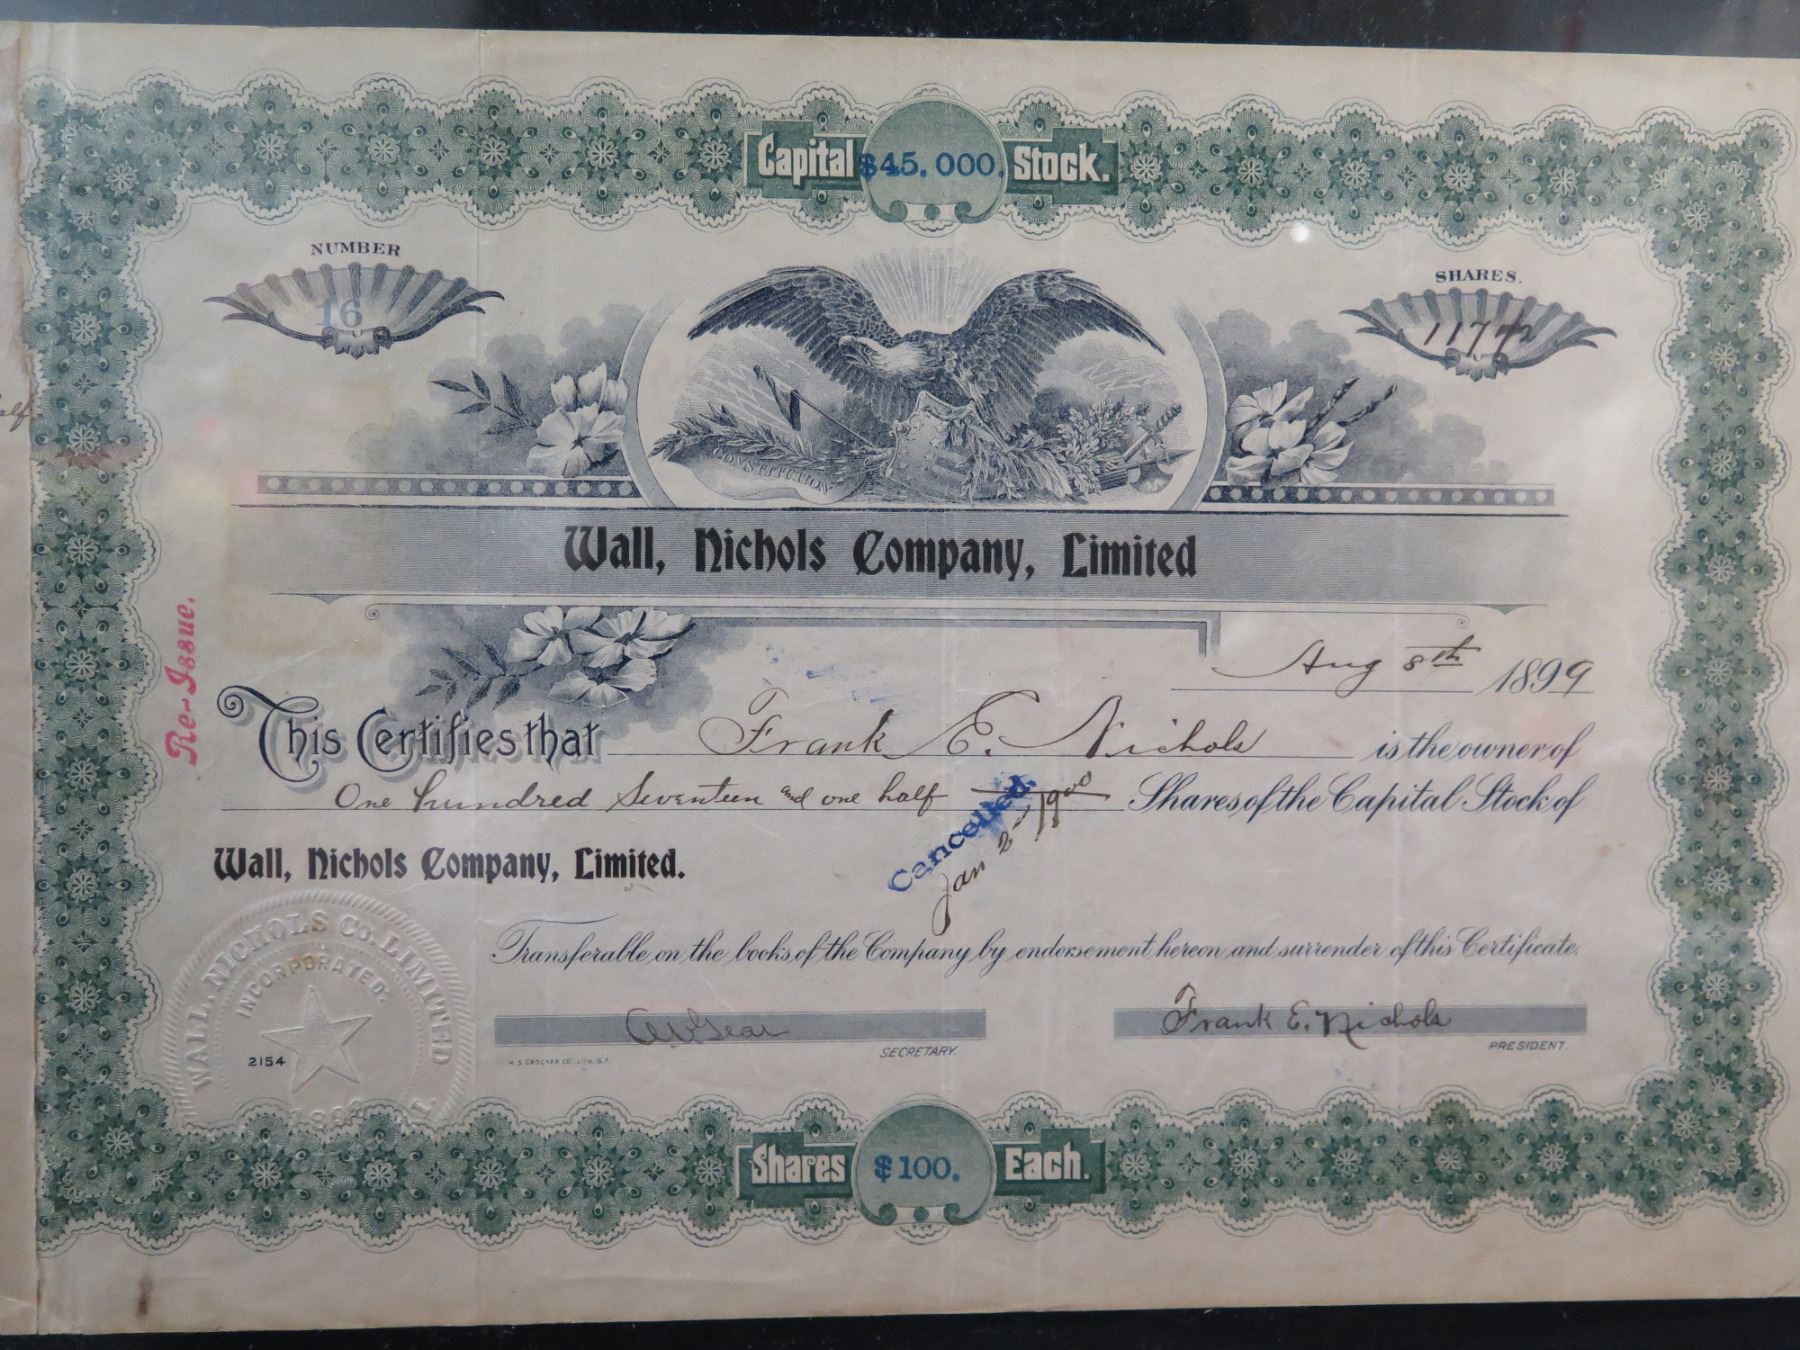 Capital $45,000. Stock.
NUMBER
16
SHARES.
117 1/2
CONSTITUTION
Wall, Nichols Company, Limited
Re-Issue.
Aug 8th 1899
This Certifies that Frank E. Nichols is the owner of
One hundred Seventeen and one half Shares of the Capital Stock of
Wall, Nichols Company, Limited.
Cancelled.
Jan 2 - 1900
Transferable on the books of the Company by endorsement hereon and surrender of this Certificate.
WALL, NICHOLS CO. LIMITED
INCORPORATED.
2154
SECRETARY.
H.S. CROCKER CO. LITH. S.F.
Frank E. Nichols
PRESIDENT.
Shares $100. Each.